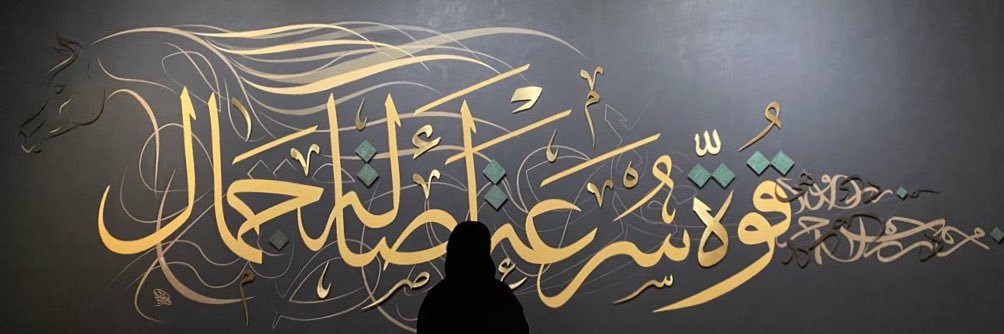 قُوّة سُرعَة أَصالة جَمال